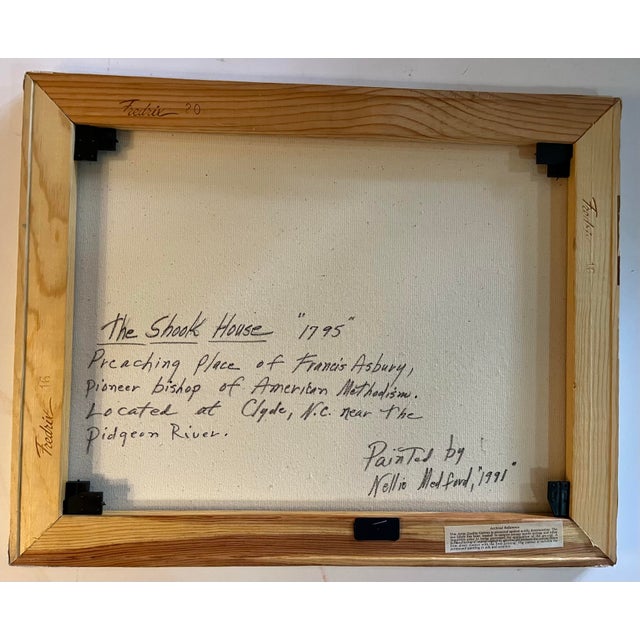 Fredrix 20
The Shook House "1795"
Preaching place of Francis Asbury,
pioneer bishop of American Mothodism.
Located at Clyde, N.C. near the
Pidgeon River.
Painted by
Nellie Medford, "1991"
Fredrix 16
Fredrix 16
Archival Reference